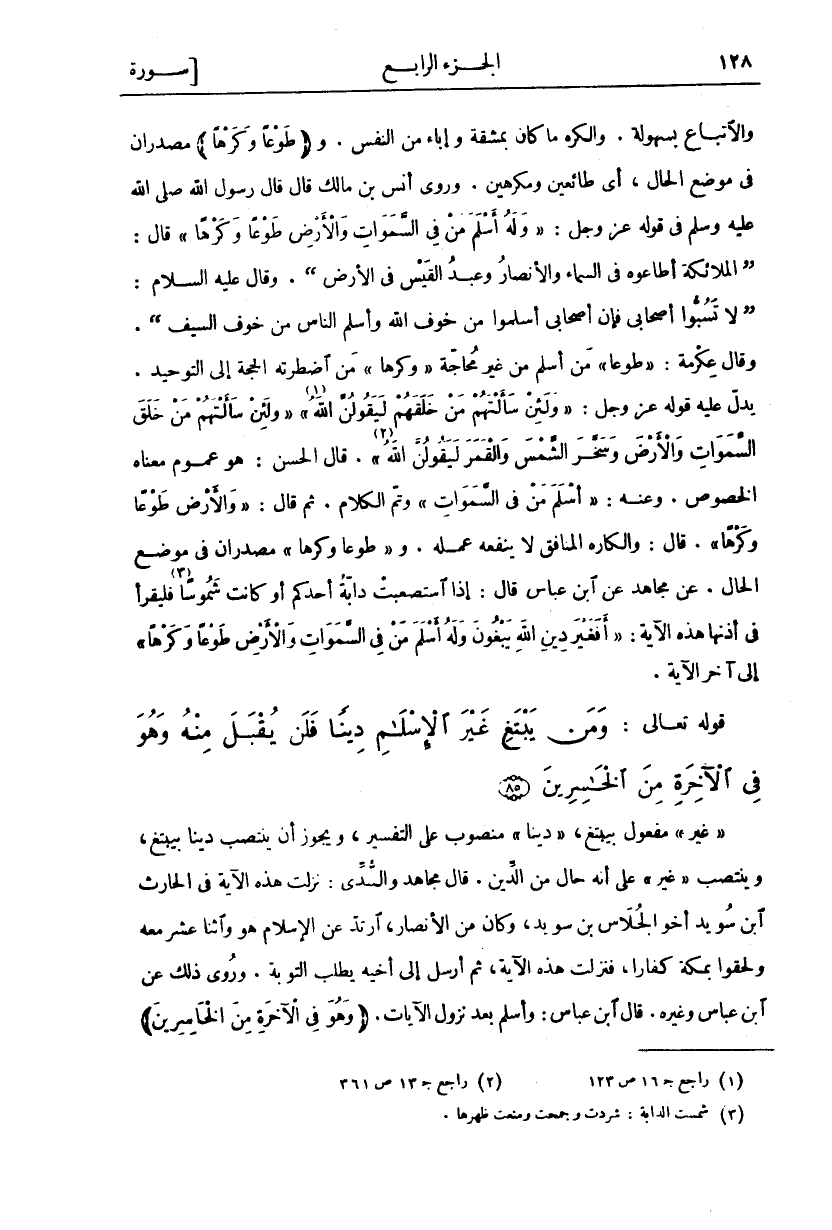 ١٢٨ الجــزء الرابــع [ســـورة
والاتباع بسهولة . والكره ما كان بمشقة وإباء من النفس . و ﴿ طَوْعًا وَكَرْهًا ﴾ مصدران
فى موضع الحال ، أى طائعين ومكرهين . وروى أنس بن مالك قال قال رسول الله صلى الله
عليه وسلم فى قوله عز وجل : « وَلَهُ أَسْلَمَ مَنْ فِى السَّمَوَاتِ وَالْأَرْضِ طَوْعًا وَكَرْهًا » قال :
” الملائكة أطاعوه فى السماء والأنصارُ وعبــدُ القَيْس فى الأرض “ . وقال عليه الســلام :
” لا تَسُبُّوا أصحابى فإن أصحابى أسلموا من خوف الله وأسلم الناس من خوف السيف “ .
وقال عِكْرمة : «طوعا» مَن أسلم من غير مُحاجّة « وكرها » مَن ٱضطرته الحجة إلى التوحيد .
يدلّ عليه قوله عز وجل : « وَلَئِنْ سَأَلْتَهُمْ مَنْ خَلَقَهُمْ لَيَقُولُنَّ اللهُ(١)» « ولَئِنْ سَأَلْتَهُمْ مَنْ خَلَقَ
السَّمَوَاتِ وَالْأَرْضَ وَسَخَّرَ الشَّمْسَ وَالْقَمَرَ لَيَقُولُنَّ اللهُ(٢) » . قال الحسن : هو عمــوم معناه
الخصوص . وعنــه : « أَسْلَمَ مَنْ فِى السَّمَوَاتِ » وتمّ الكلام . ثم قال : «وَالْأَرْضِ طَوْعًا
وَكَرْهًا» . قال : والكاره المنافق لا ينفعه عمــله . و « طوعا وكرها » مصدران فى موضــع
الحال . عن مجاهد عن ٱبن عباس قال : إذا ٱستصعبتْ دابّةُ أحدكم أو كانت شَمُوسًا(٣) فليقرأ
فى أذنها هذه الآية : « أَفَغَيْرَ دِينِ اللهِ يَبْغُونَ وَلَهُ أَسْلَمَ مَنْ فِى السَّمَوَاتِ وَالْأَرْضِ طَوْعًا وَكَرْهًا»
إلى آخر الآية .
قوله تعــالى : وَمَن يَبْتَغِ غَيْرَ ٱلْإِسْلَـٰمِ دِينًا فَلَن يُقْبَلَ مِنْهُ وَهُوَ
فِى ٱلْآخِرَةِ مِنَ ٱلْخَـٰسِرِينَ ﴿٨٥﴾
« غير » مفعول بيبتغ، « دينا » منصوب على التفسير ، ويجوز أن ينتصب دينا بيبتغ،
وينتصب « غير » على أنه حال من الدِّين . قال مجاهد والسُّدِّى : نزلت هذه الآية فى الحارث
ٱبن سُويد أخو الجُلَاس بن سويد، وكان من الأنصار، ٱرتدّ عن الإسلام هو وٱثنا عشر معه
ولحقوا بمكة كفارا، فنزلت هذه الآية، ثم أرسل إلى أخيه يطلب التوبة . ورُوى ذلك عن
ٱبن عباس وغيره . قال ٱبن عباس : وأسلم بعد نزول الآيات . ﴿ وَهُوَ فِى الْآخِرَةِ مِنَ الْخَاسِرِينَ﴾
(١) راجع جـ ١٦ ص ١٢٣ (٢) راجع جـ ١٣ ص ٣٦١
(٣) شمست الدابة : شردت وجمحت ومنعت ظهرها .